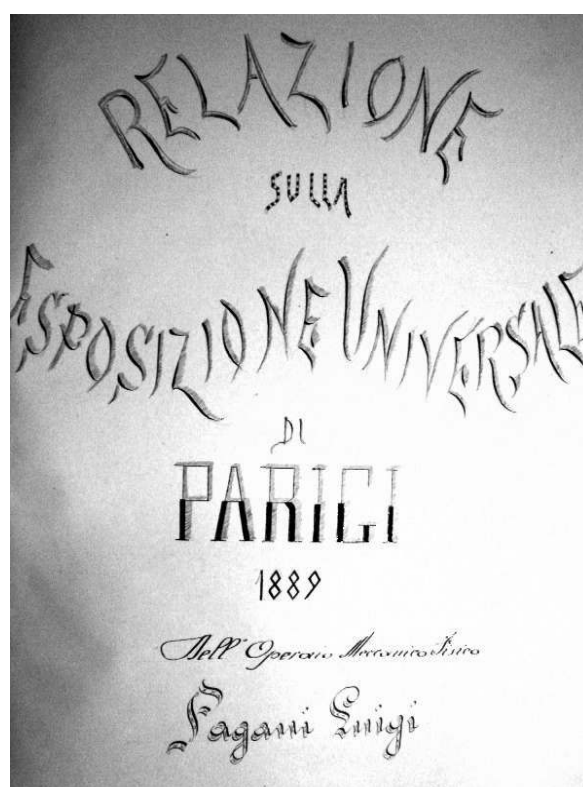 RELAZIONE
SULLA
ESPOSIZIONE UNIVERSALE
DI
PARIGI
1889
Dell' Operaio Meccanico Fisico
Pagani Luigi